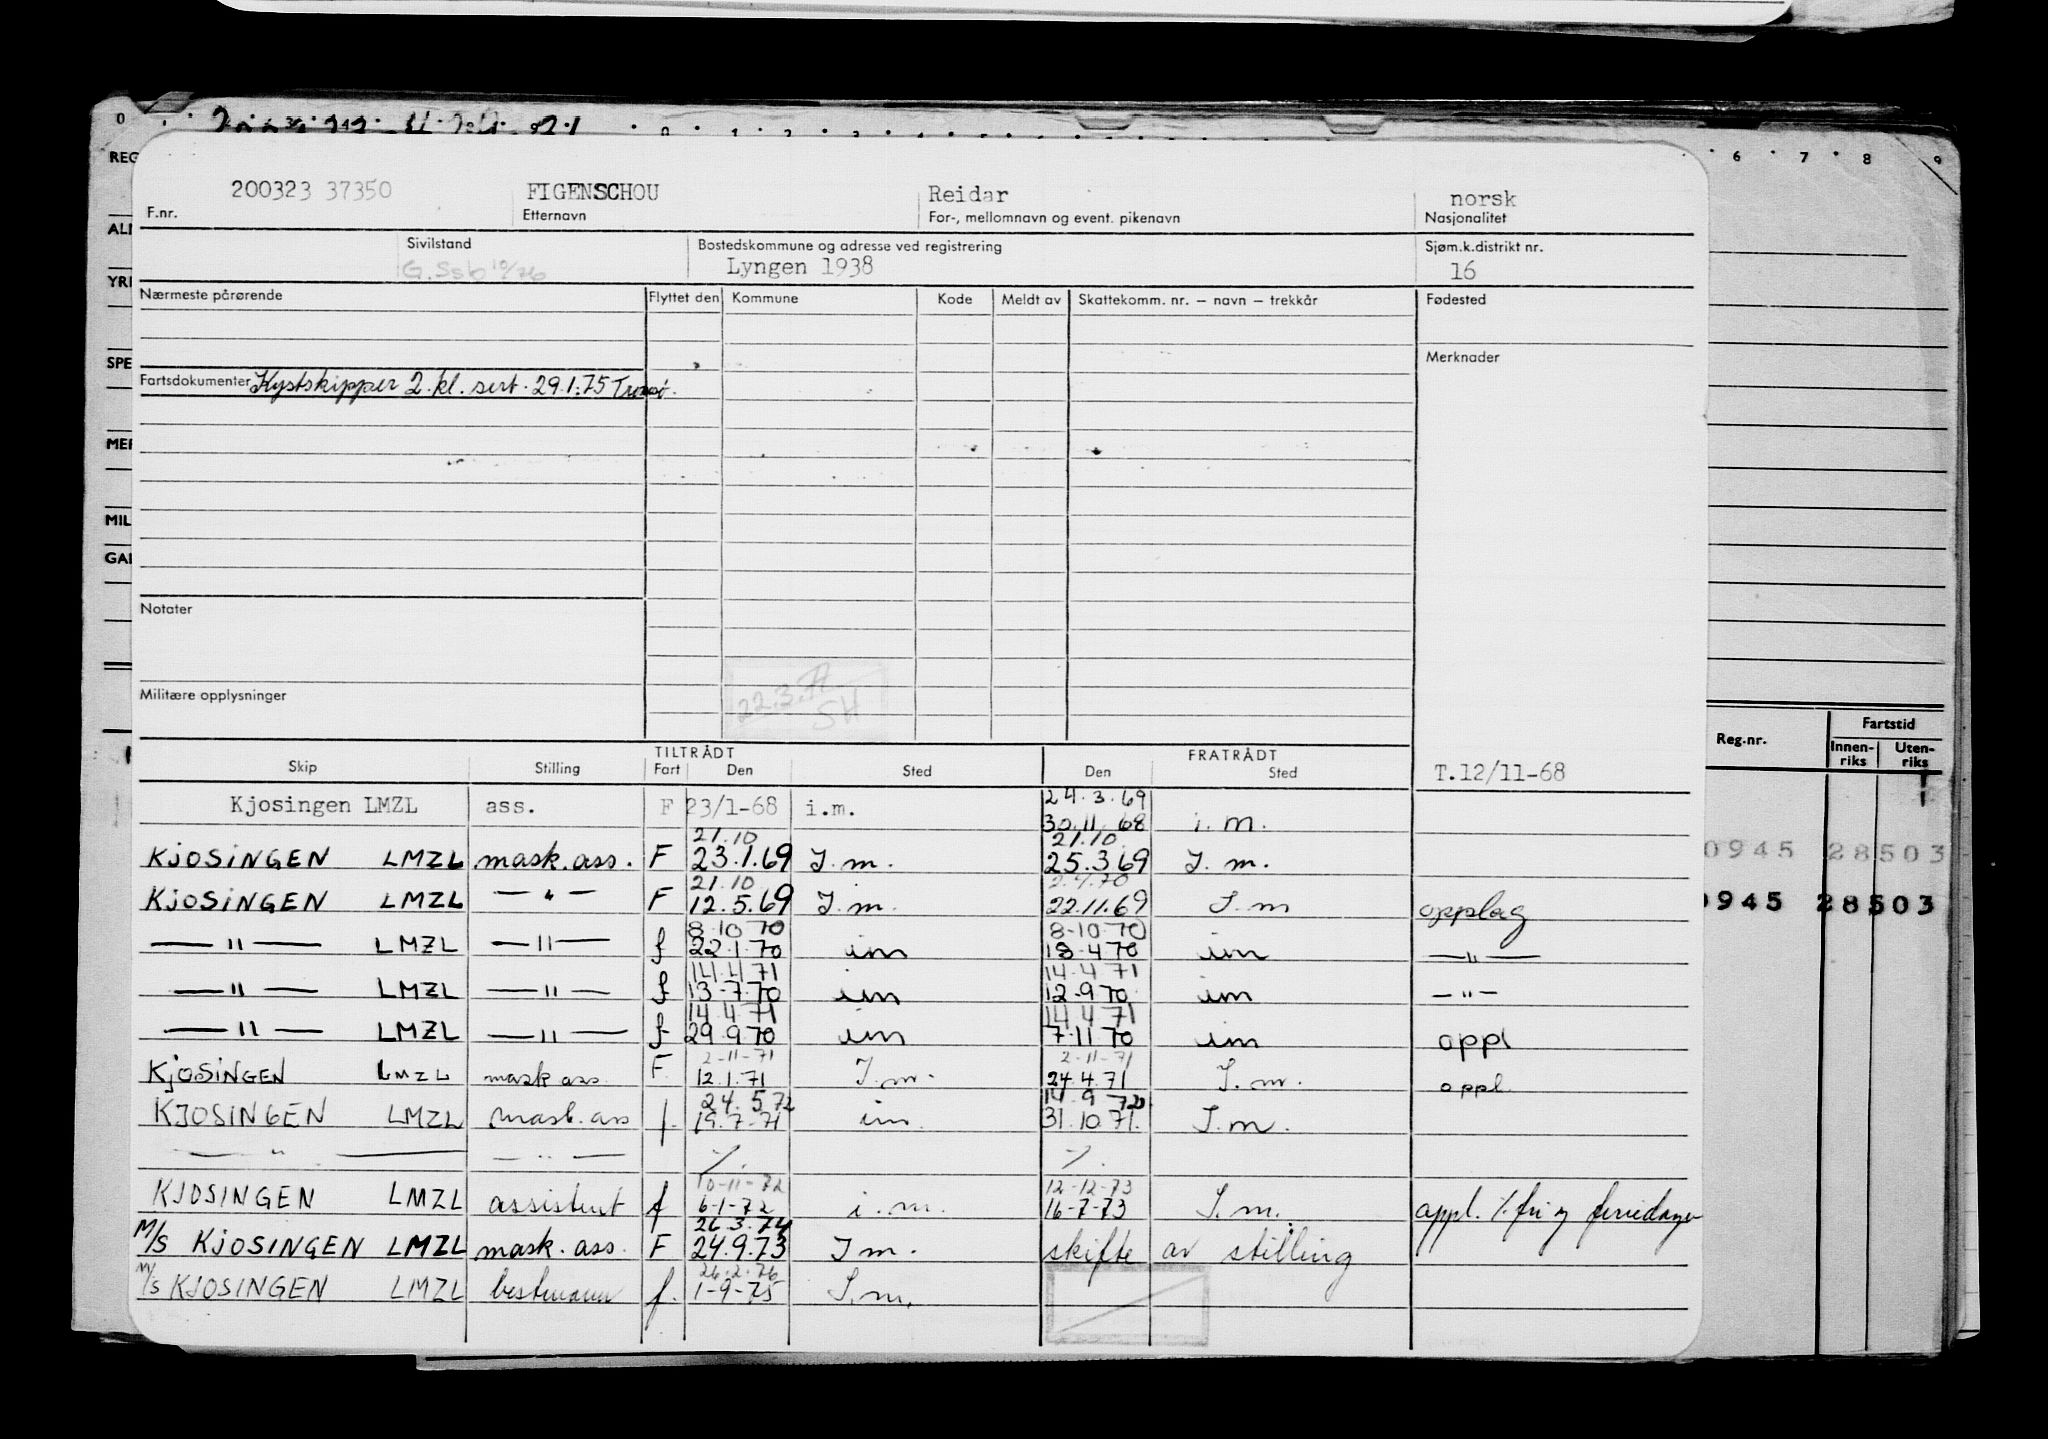 200323 37350 FIGENSCHOU Reidar norsk
F.nr. Etternavn For-, mellomnavn og event. pikenavn Nasjonalitet
Sivilstand Bostedskommune og adresse ved registrering Sjøm.k.distrikt nr.
G. Ssb 10/76 Lyngen 1938 16
Nærmeste pårørende Flyttet den Kommune Kode Meldt av Skattekomm. nr. – navn – trekkår Fødested
Merknader
Fartsdokumenter Kystskipper 2. kl. sert. 29.1.75 Tromsø.
Notater
22.3.77
SH
Militære opplysninger
TILTRÅDT FRATRÅDT
Skip Stilling Fart Den Sted Den Sted
T.12/11-68
24.3.69
Kjosingen LMZL ass. F 23/1-68 i.m. 30.11.68 i.m.
21.10 21.10
KJOSINGEN LMZL mask.ass. F 23.1.69 I.m. 25.3.69 I.m.
21.10 2.4.70
KJOSINGEN LMZL — " — F 12.5.69 I.m. 22.11.69 I.m opplag
8.10.70 8-10.70
— " — LMZL — " — f 22.1.70 im 18.4.70 im — " —
14.4.71 14.4.71
— " — LMZL — " — f 13-7.70 im 12.9.70 im — " —
14.4.71 14.4.71
— " — LMZL — " — f 29.9.70 im 7.11.70 im oppl
2-11-71 2-11-71
KJOSINGEN LMZL mask ass. F. 12.1.71 I.m. 24.4.71 I.m. oppl.
24.5.72 14.9.72
KJOSINGEN LMZL mask. ass f. 19.7-71 im. 31.10.71. I.m.
— " — — " — ./. ./.
10-11-72 12-12-73
KJOSINGEN LMZL assistent f 6-1-72 i.m. 16-7-73 I.m. oppl. ./. fri og feriedager
26.3.74
M/S KJOSINGEN LMZL mask. ass. F. 24.9.73 I m. skifte av stilling
26.2.76
M/S KJOSINGEN LMZL bestmann f. 1-9-75 I.m.
REG
ALM
YRK
SPE
MER
MIL
GAR
0 1 2 3 4 5 6
6 7 8 9
Reg.nr. Fartstid
Innen-riks Uten-riks
0945 28503
0945 28503